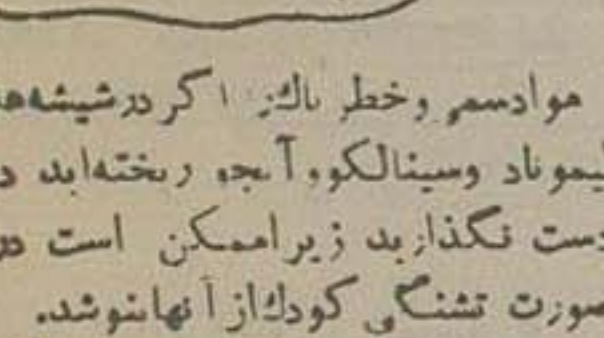 موادسمی و خطر ناك: اگر در شیشه‌ه
لیموناد وسینالکوو آبجو ریخته‌اید د
دست نگذارید زیراممکن است در
صورت تشنگی کودك از آنها بنوشد.